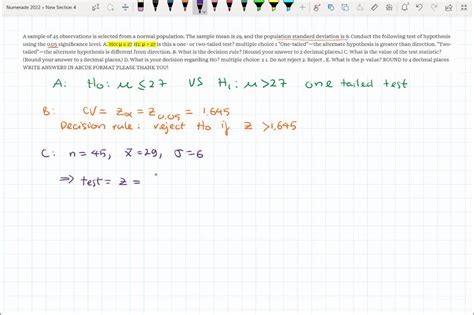 Numerade 2022 » New Section 4
A sample of 45 observations is selected from a normal population. The sample mean is 29, and the population standard deviation is 6. Conduct the following test of hypothesis
using the 0.05 significance level. A. H0: μ ≤ 27 H1: μ > 27 Is this a one- or two-tailed test? multiple choice 1 "One-tailed"—the alternate hypothesis is greater than direction. "Two-
tailed"—the alternate hypothesis is different from direction. B. What is the decision rule? (Round your answer to 2 decimal places.) C. What is the value of the test statistic?
(Round your answer to 2 decimal places.) D. What is your decision regarding H0? multiple choice 2 1. Do not reject 2. Reject , E. What is the p-value? ROUND to 4 decimal places
WRITE ANSWERS IN ABCDE FORMAT PLEASE THANK YOU!
A: H0: μ ≤ 27 VS H1: μ > 27 one tailed test
B: CV = Zα = Z0.05 = 1.645
Decision rule: reject H0 if Z > 1,645
C: n = 45, x̄ = 29, σ = 6
⇒ test = Z =